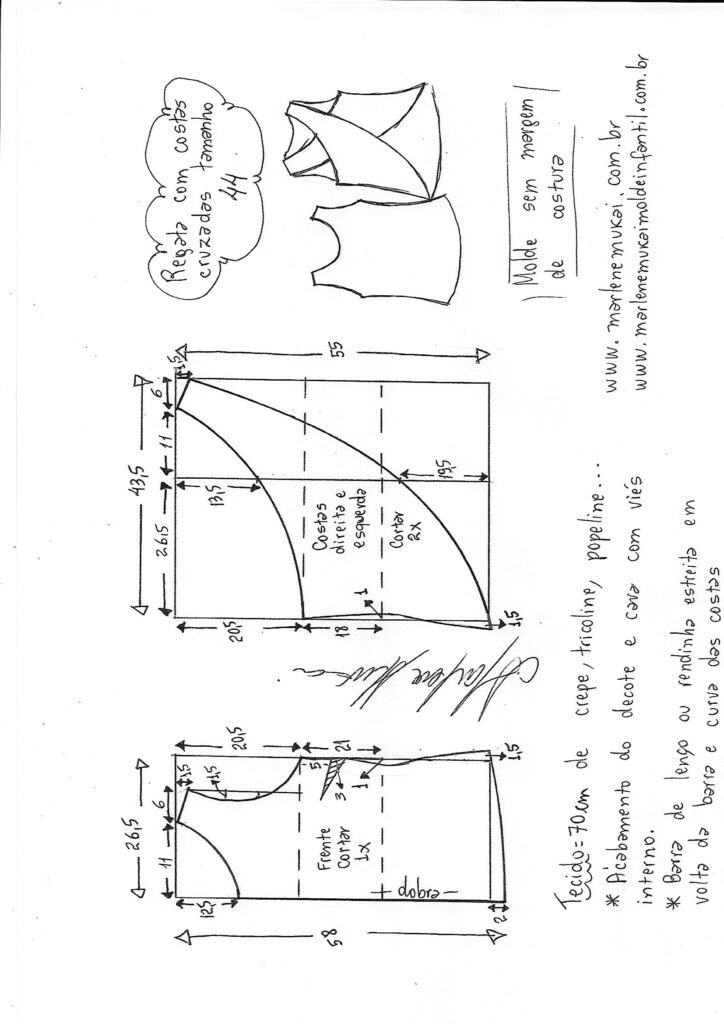 Regata com costas
cruzadas tamanho
44
Molde sem margem
de costura
www.marlenemukai.com.br
www.marlenemukaimoldeinfantil.com.br
26,5
11
6
1,5
12,5
1,5
20,5
5
3
21
1
Frente
Cortar
1x
dobra
58
2
1,5
43,5
26,5
11
6
1,5
55
13,5
19,5
20,5
18
1
1,5
Costas
direita e
esquerda
Cortar
2x
Tecido=70cm de crepe, tricoline, popeline...
* Acabamento do decote e cava com viés
interno.
* Barra de lenço ou rendinha estreita em
volta da barra e curva das costas